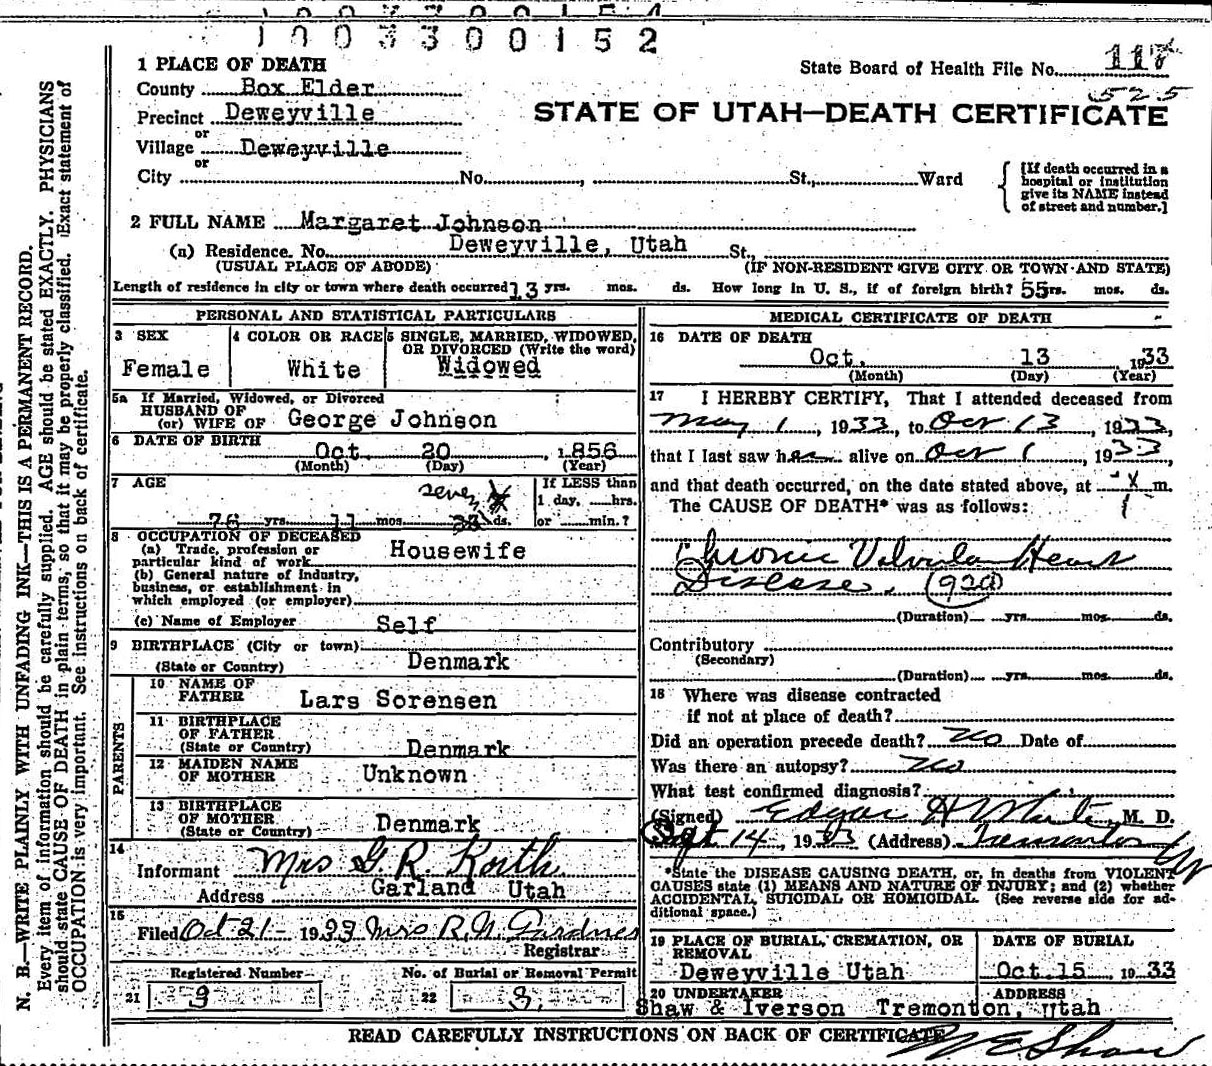 1003300152
1 PLACE OF DEATH
State Board of Health File No. 117
525
County Box Elder
STATE OF UTAH—DEATH CERTIFICATE
Precinct Deweyville
or
Village Deweyville
or
City No. , St., Ward
[If death occurred in a
hospital or institution
give its NAME instead
of street and number.]
2 FULL NAME Margaret Johnson
(a) Residence. No. Deweyville, Utah St.,
(USUAL PLACE OF ABODE) (IF NON-RESIDENT GIVE CITY OR TOWN AND STATE)
Length of residence in city or town where death occurred 13 yrs. mos. ds. How long in U. S., if of foreign birth? 55 rs. mos. ds.
PERSONAL AND STATISTICAL PARTICULARS
3 SEX
Female
4 COLOR OR RACE
White
5 SINGLE, MARRIED, WIDOWED,
OR DIVORCED (Write the word)
Widowed
5a If Married, Widowed, or Divorced
HUSBAND OF
(or) WIFE OF George Johnson
6 DATE OF BIRTH
Oct. 20 , 1856
(Month) (Day) (Year)
7 AGE
seven
76 yrs. 11 mos. ds.
If LESS than
1 day, hrs.
or min.?
8 OCCUPATION OF DECEASED
(a) Trade, profession or
particular kind of work Housewife
(b) General nature of industry,
business, or establishment in
which employed (or employer)
(c) Name of Employer Self
9 BIRTHPLACE (City or town)
(State or Country) Denmark
PARENTS
10 NAME OF
FATHER Lars Sorensen
11 BIRTHPLACE
OF FATHER
(State or Country) Denmark
12 MAIDEN NAME
OF MOTHER Unknown
13 BIRTHPLACE
OF MOTHER
(State or Country) Denmark
14
Informant Mrs G. R. Korth
Address Garland Utah
15
Filed Oct 21- 1933 Mrs R. N. Gardner
Registrar
Registered Number
21 9
No. of Burial or Removal Permit
22 8.
MEDICAL CERTIFICATE OF DEATH
16 DATE OF DEATH
Oct. 13 1933
(Month) (Day) (Year)
17 I HEREBY CERTIFY, That I attended deceased from
May 1, 1933, to Oct 13, 1933,
that I last saw her alive on Oct 1, 1933,
and that death occurred, on the date stated above, at m.
The CAUSE OF DEATH* was as follows:
Chronic Valvular Heart
Disease. (92a)
(Duration) yrs. mos. ds.
Contributory
(Secondary)
(Duration) yrs. mos. ds.
18 Where was disease contracted
if not at place of death?
Did an operation precede death? no Date of
Was there an autopsy? no
What test confirmed diagnosis?
(Signed) Edgar H White, M. D.
Sept 14, 1933 (Address) Tremonton
*State the DISEASE CAUSING DEATH, or, in deaths from VIOLENT
CAUSES state (1) MEANS AND NATURE OF INJURY; and (2) whether
ACCIDENTAL, SUICIDAL OR HOMICIDAL. (See reverse side for ad-
ditional space.)
19 PLACE OF BURIAL, CREMATION, OR
REMOVAL
Deweyville Utah
DATE OF BURIAL
Oct. 15 , 1933
20 UNDERTAKER ADDRESS
Shaw & Iverson Tremonton, Utah
READ CAREFULLY INSTRUCTIONS ON BACK OF CERTIFICATE
W E Shaw
N. B.—WRITE PLAINLY WITH UNFADING INK—THIS IS A PERMANENT RECORD.
Every item of information should be carefully supplied. AGE should be stated EXACTLY. PHYSICIANS
should state CAUSE OF DEATH in plain terms, so that it may be properly classified. Exact statement of
OCCUPATION is very important. See instructions on back of certificate.